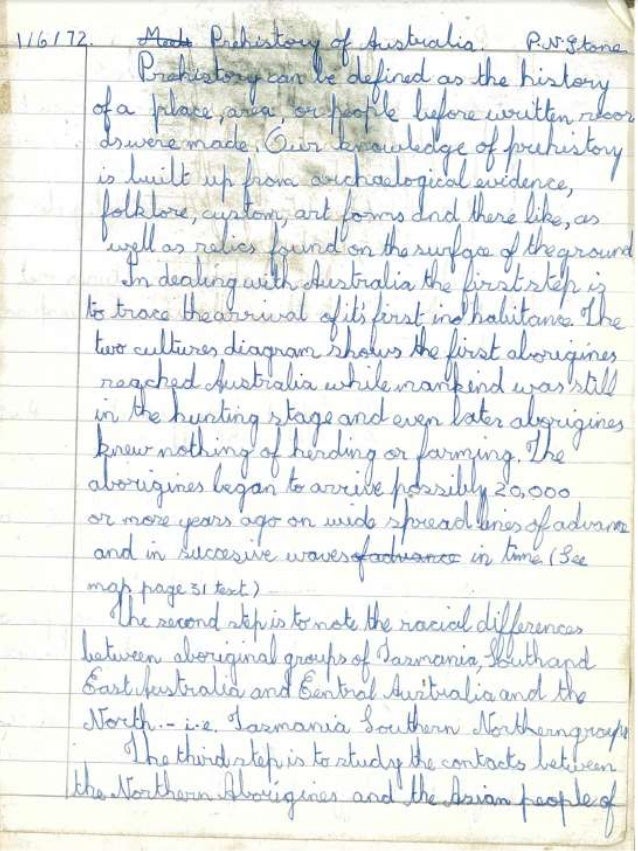 1/6/72. Meats Prehistory of Australia. P.N. Stone
Prehistory can be defined as the history
of a place, area, or people before written recor
ds were made. Our knowledge of prehistory
is built up from archaelogical evidence,
folklore, custom, art forms and there like, as
well as relics found on the surface of the ground
In dealing with Australia the first step is
to trace the arrival of it's first inhabitance. The
two cultures diagram shows the first aborigines
reached Australia while mankind was still
in the hunting stage and even later aborigines
knew nothing of herding or farming. The
aborigines began to arrive possibly 20,000
or more years ago on wide spread lines of advance
and in succesive waves of advance in time (See
map page 31 text)
The second step is to note the racial differences
between aboriginal groups of Tasmania, South and
East Australia and Central Australia and the
North. - i.e. Tasmania Southern Northern groups
The third step is to study the contacts between
the Northern Aborigines and the Asian people of